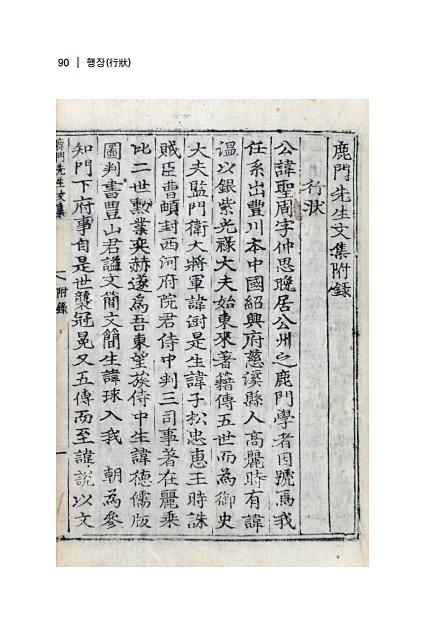 90 | 행장(行狀)
鹿門先生文集附錄
行狀
公諱聖周字仲思晚居公州之鹿門學者因號焉我
任系出豊川本中國紹興府慈溪縣人高麗時有諱
温以銀紫光祿大夫始東來著籍傳五世而為御史
大夫監門衛大將軍諱澍是生諱子松忠惠王時誅
賊臣曹頔封西河府院君侍中判三司事著在麗乘
比二世勳業奕赫遂為吾東望族侍中生諱德儒版
圖判書豊山君謚文簡文簡生諱球入我 朝為參
知門下府事自是世襲冠冕又五傳而至諱說以文
鹿門先生文集
附錄
一